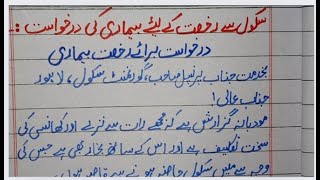 سکول سے رخصت کے لیئے بیماری کی درخواست :۔
درخواست برائے رخصت بیماری
بخدمت جناب پرنسپل صاحب، گورنمنٹ سکول، لاہور
جناب عالی!
مودبانہ گزارش ہے کہ مجھے رات سے نزلے اور کھانسی کی
سخت تکلیف ہے اور اس کے ساتھ بخار بھی ہے جس کی
وجہ سے میں سکول حاضر ہونے سے قاصر ہوں